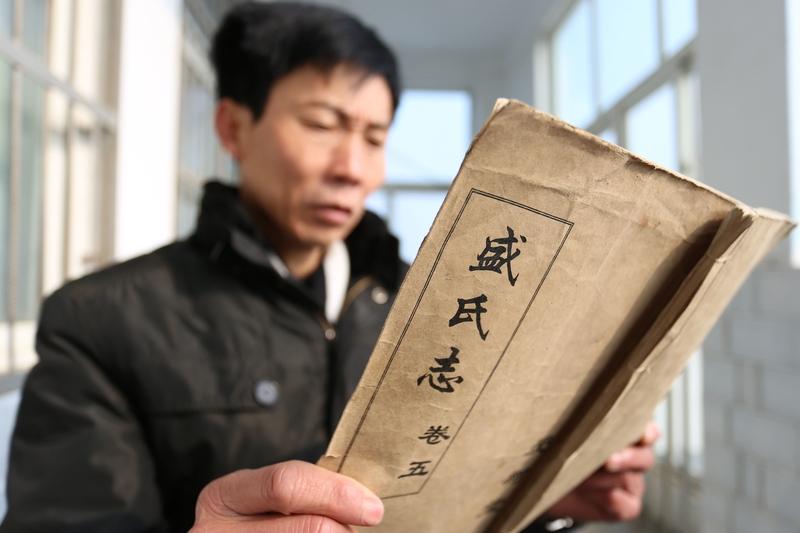 盛氏志
卷五